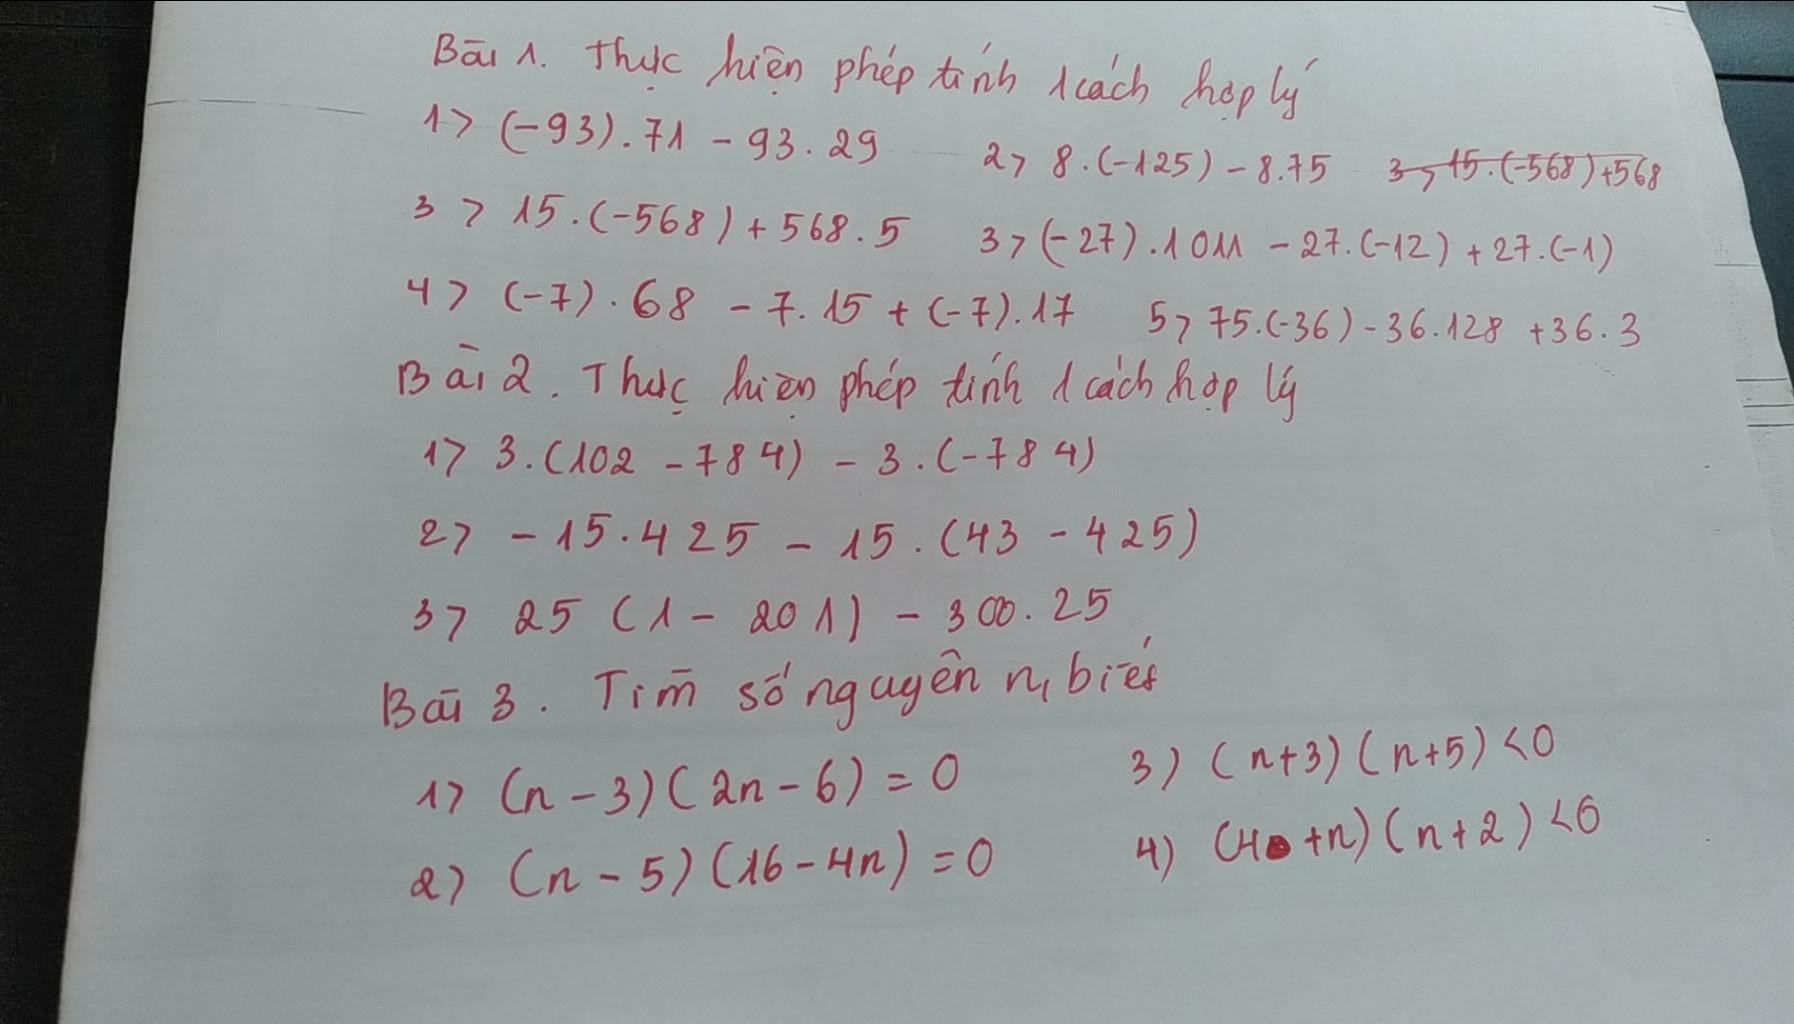 Bài 1. Thực hiện phép tính 1 cách hợp lý
1> (-93).71 - 93.29 2> 8.(-125) - 8.75 3> 15.(-568)+568
3> 15.(-568) + 568.5 3> (-27).1011 - 27.(-12) + 27.(-1)
4> (-7).68 - 7.15 + (-7).17 5> 75.(-36) - 36.128 + 36.3
Bài 2. Thực hiện phép tính 1 cách hợp lý
1> 3.(102 - 784) - 3.(-784)
2> - 15.425 - 15.(43 - 425)
3> 25 (1 - 201) - 300.25
Bài 3. Tìm số nguyên n, biết
1> (n - 3)(2n - 6) = 0 3) (n+3)(n+5) <0
2> (n - 5)(16 - 4n) = 0 4) (4+n)(n+2) <0